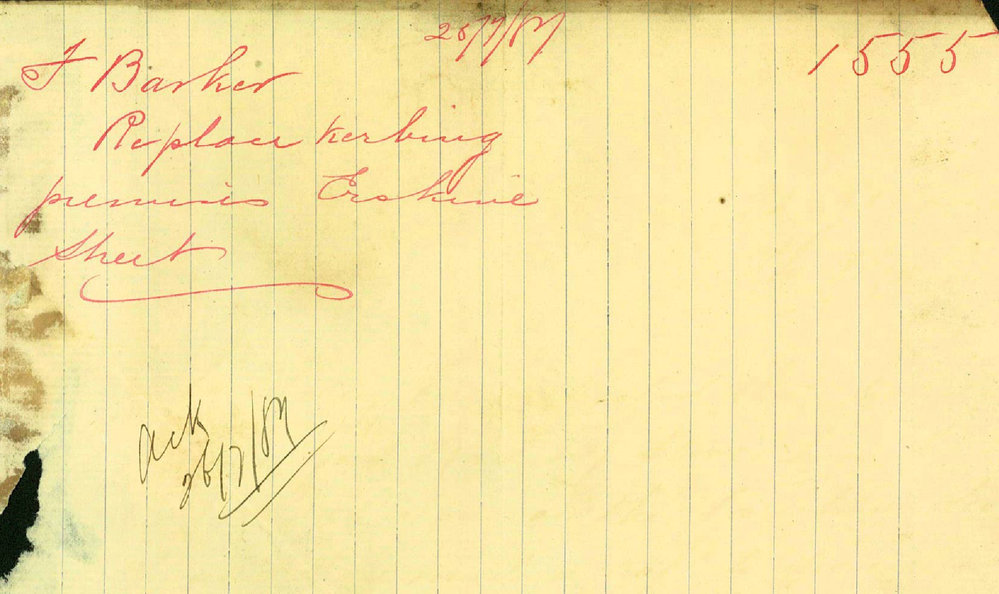 25/7/87
1555
F Barker
Replace kerbing
premises Erskine
Street
ack
26/7/87